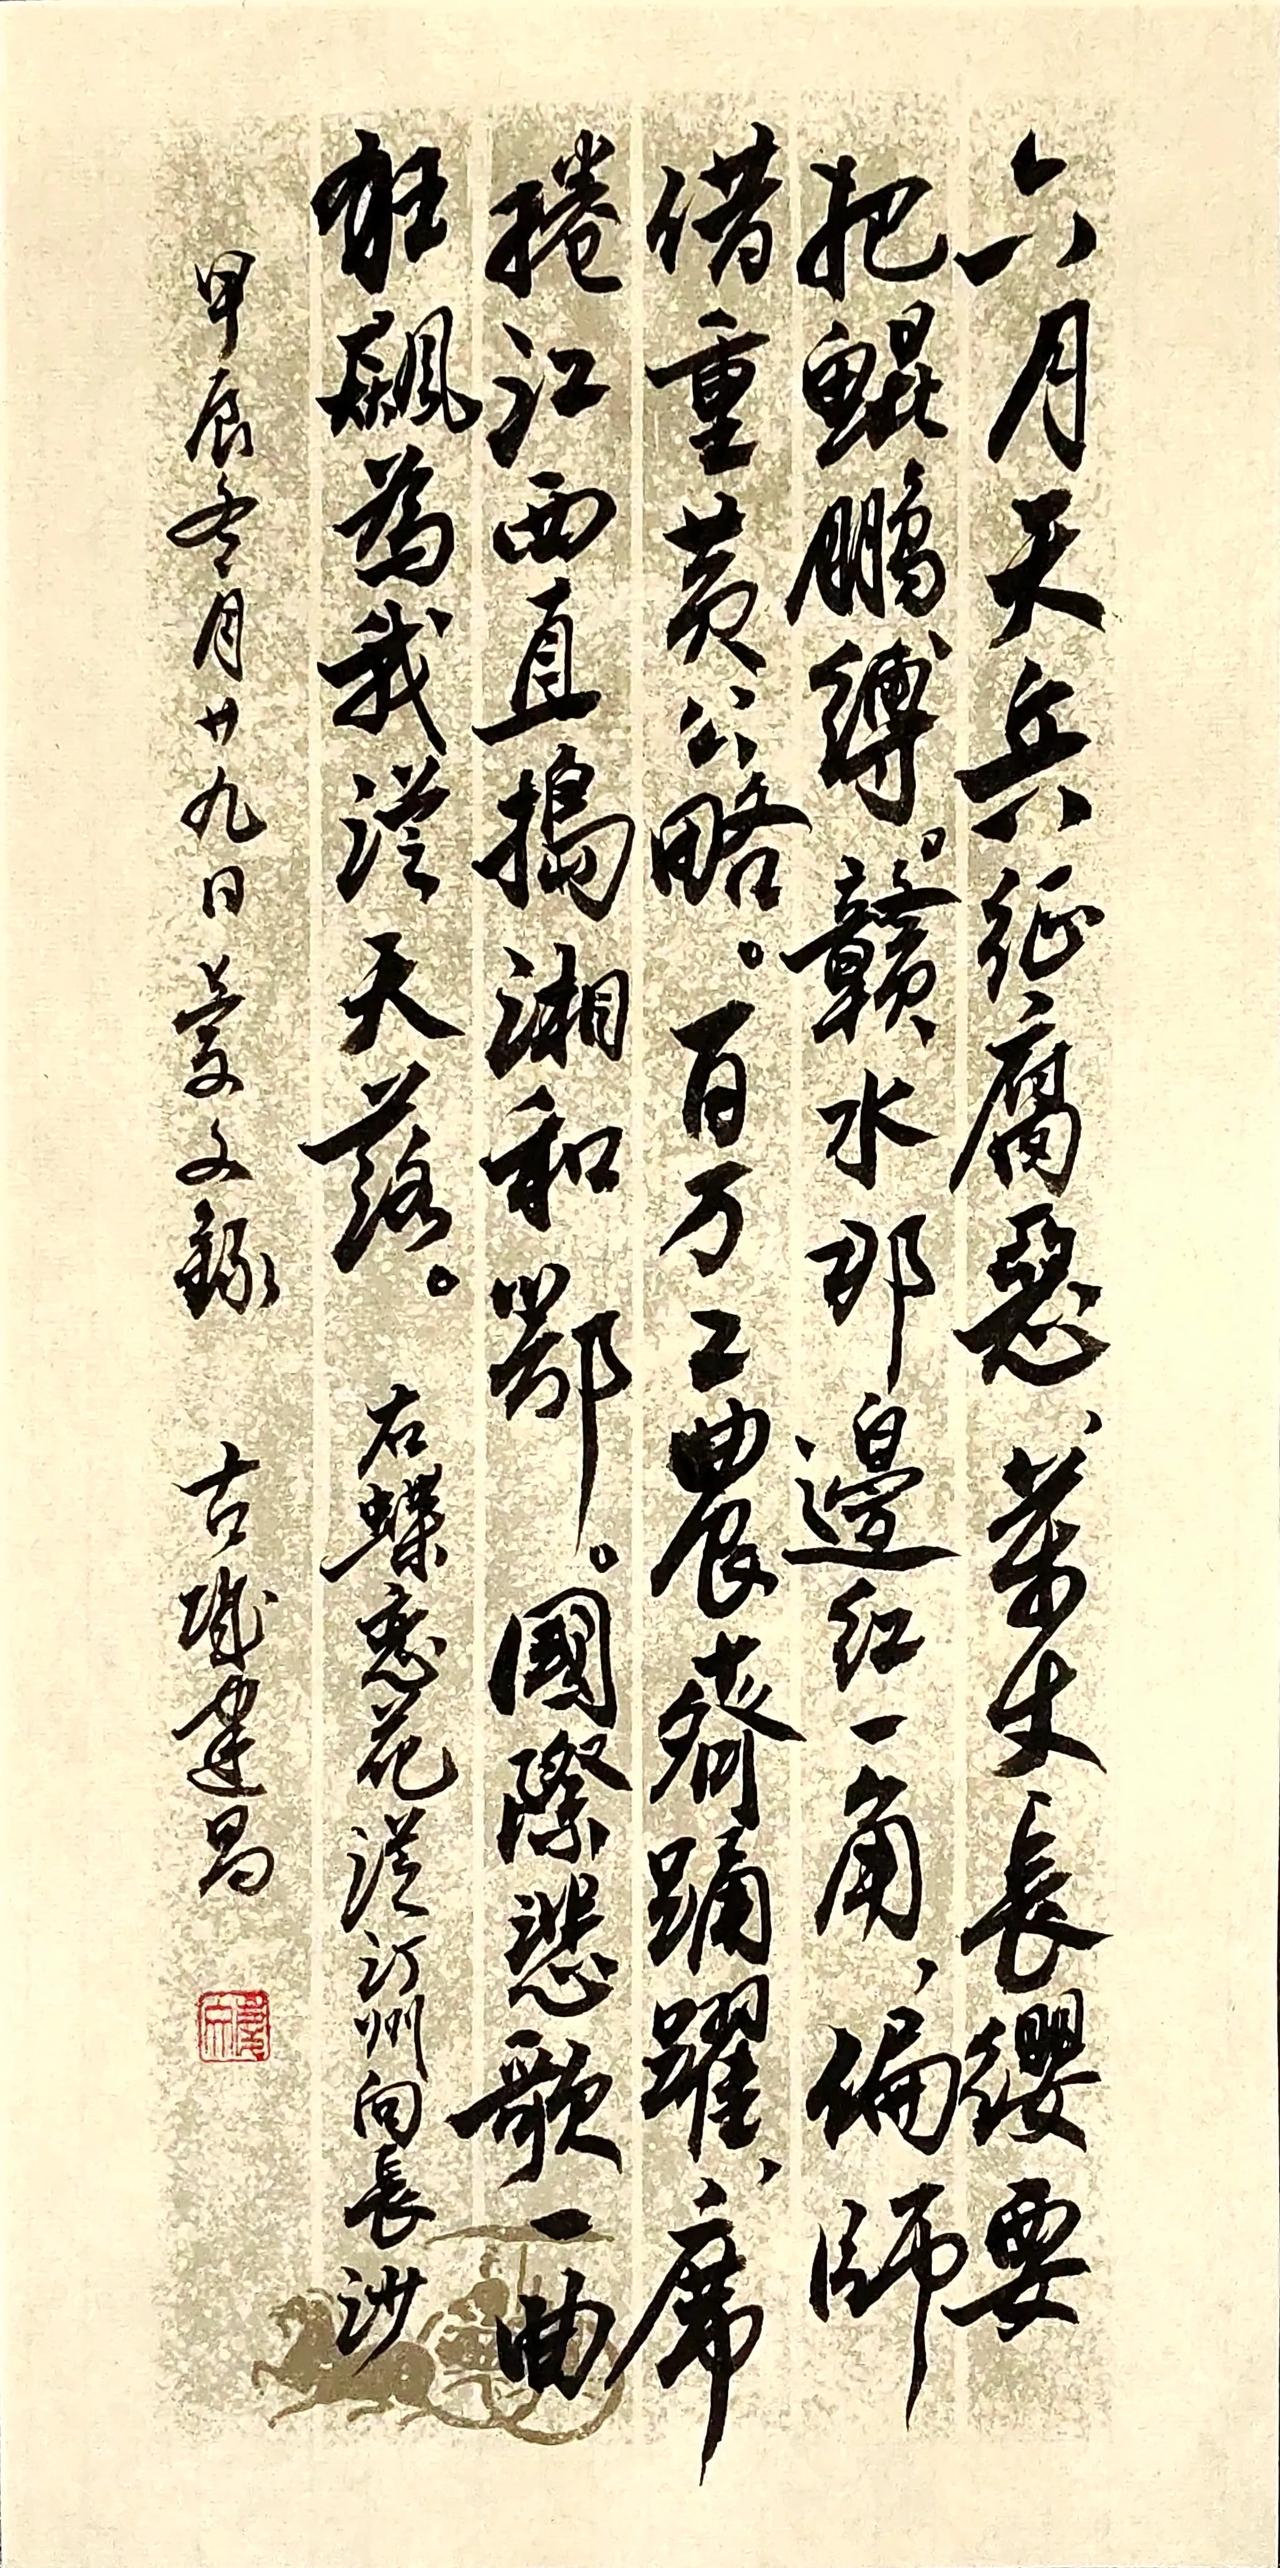 六月天兵征腐惡、萬丈長纓要
把鯤鵬縛。贛水那邊紅一角、偏師
借重黄公略。百万工農齊踴躍、席
捲江西直搗湘和鄂。國際悲歌一曲
狂飆為我從天落。 右蝶恋花從汀州向長沙
甲辰冬月廿九日 文錄 古 建昌